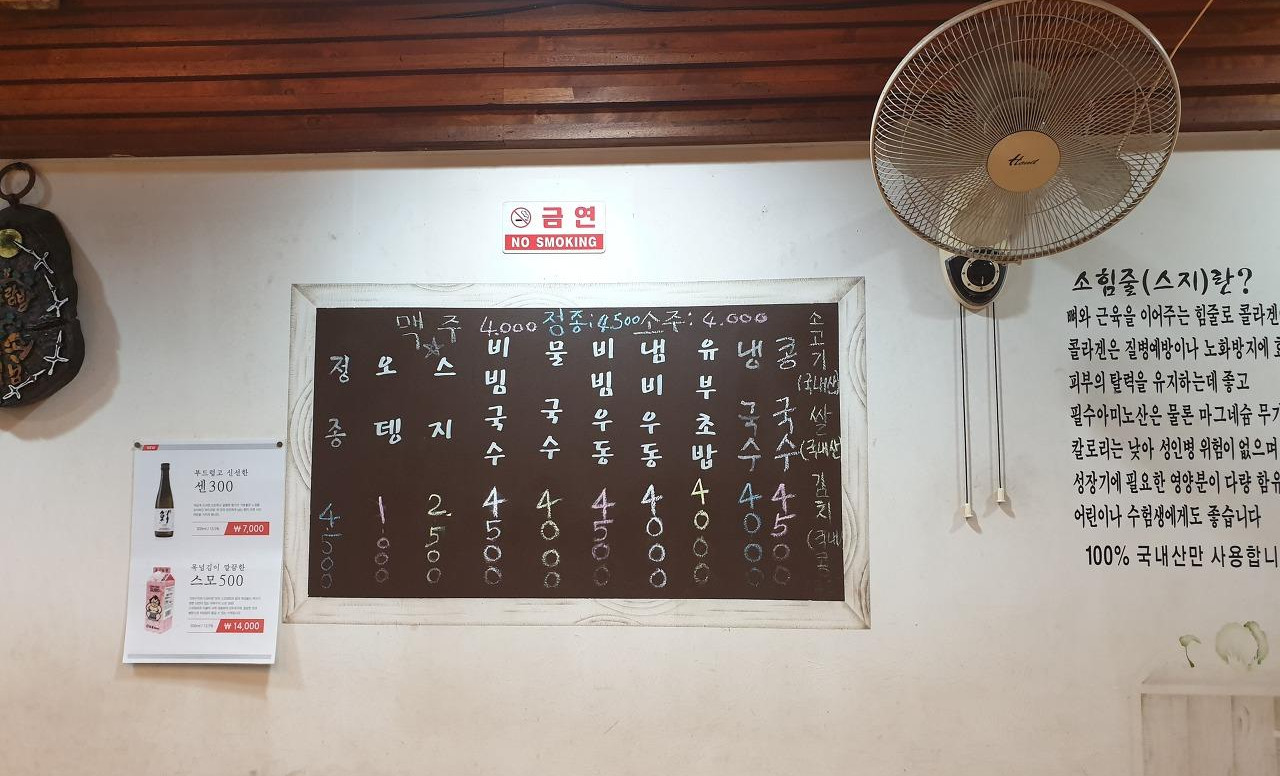 금연
NO SMOKING
맥주 4.000 정종:4500 소주: 4.000
정종 4500
오뎅 1000
스지 2.500
비빔국수 4500
물국수 4000
비빔우동 4500
냄비우동 4000
유부초밥 4000
냉국수 4000
콩국수 4500
소고기(국내산) 쌀(국내산) 김치(국내
NEW
부드럽고 신선한
센300
₩7,000
목넘김이 깔끔한
스모500
₩14,000
소힘줄(스지)란?
뼈와 근육을 이어주는 힘줄로 콜라겐
콜라겐은 질병예방이나 노화방지에
피부의 탈력을 유지하는데 좋고
필수아미노산은 물론 마그네슘 무기
칼로리는 낮아 성인병 위험이 없으며
성장기에 필요한 영양분이 다량 함유
어린이나 수험생에게도 좋습니다
100% 국내산만 사용합니